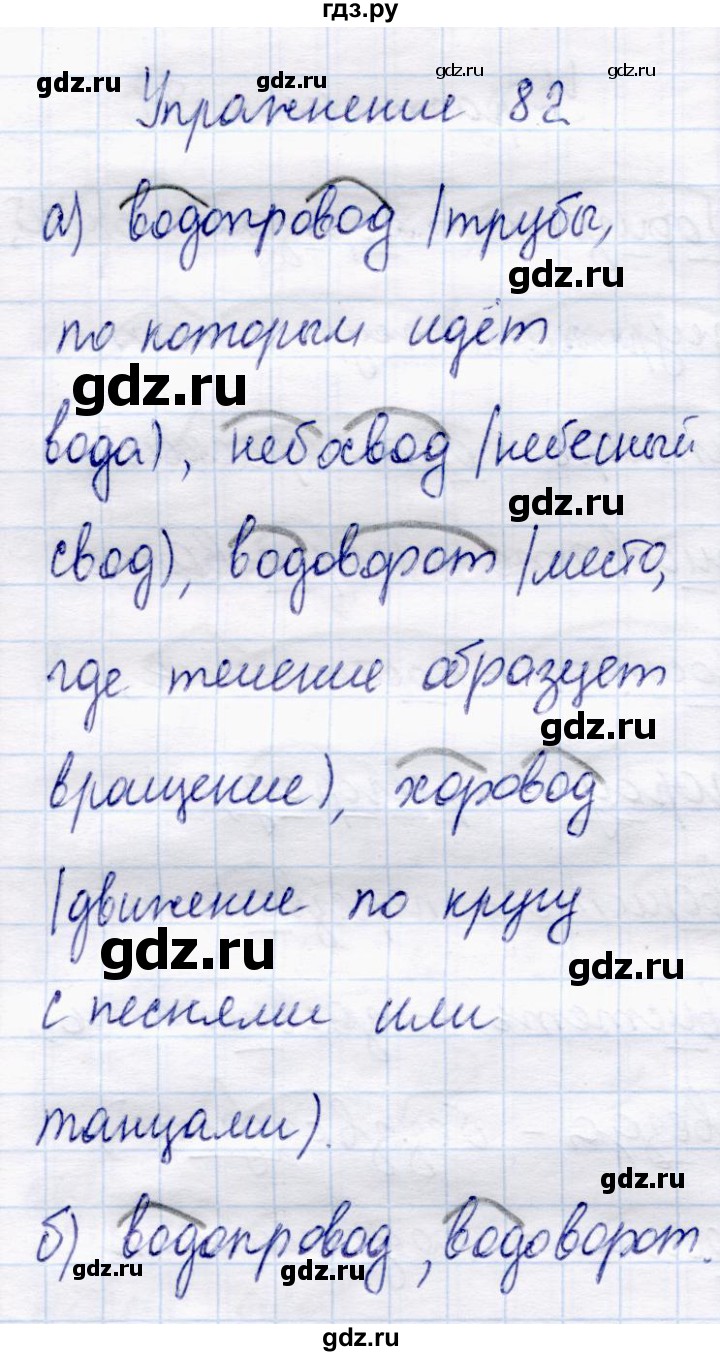 гдз.ру
gdz.ru gdz.ru gdz.ru gdz.ru
Упражнение 82
а) водопровод (трубы,
gdz.ru
по которым идёт
gdz.ru
вода), небосвод (небесный
gdz.ru
свод), водоворот (место,
где течение образует
gdz.ru
вращение), хоровод
(движение по кругу
gdz.ru gdz.ru
с песнями или
танцами).
gdz.ru
б) водопровод, водоворот.
gdz.ru gdz.ru
gdz.ru